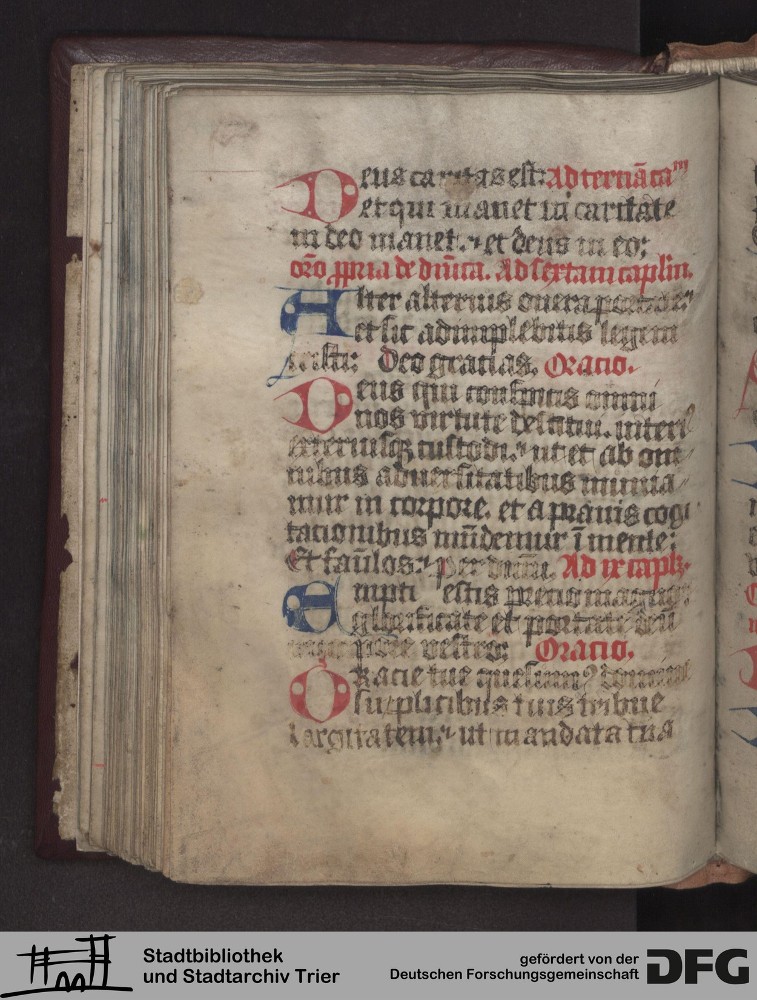 Deus caritas est: Ad terciā cam
et qui manet in caritate
in deo manet. et deus in eo:
oro ꝓpria de dnica. Ad sextam caplm.
Alter alterius onera portate
et sic adimplebitis legem
cristi: Deo gracias. Oracio.
Deus qui conspicis omni
nos virtute destitui. interi
exteriusqʒ custodi. ut et ab om
nibus aduersitatibus munia
mur in corpore. et a prauis cogi
tacionibus mūdemur ī mente:
Et fam̄los. per dnm. Ad ix capl.
Empti estis precio magno:
glorificate et portate deū
corpore vestro: Oracio.
Gracie tue quesumꝰ domine
supplicibus tuis tribue
largitatem. ut mandata tua
Stadtbibliothek
und Stadtarchiv Trier
gefördert von der
Deutschen Forschungsgemeinschaft
DFG